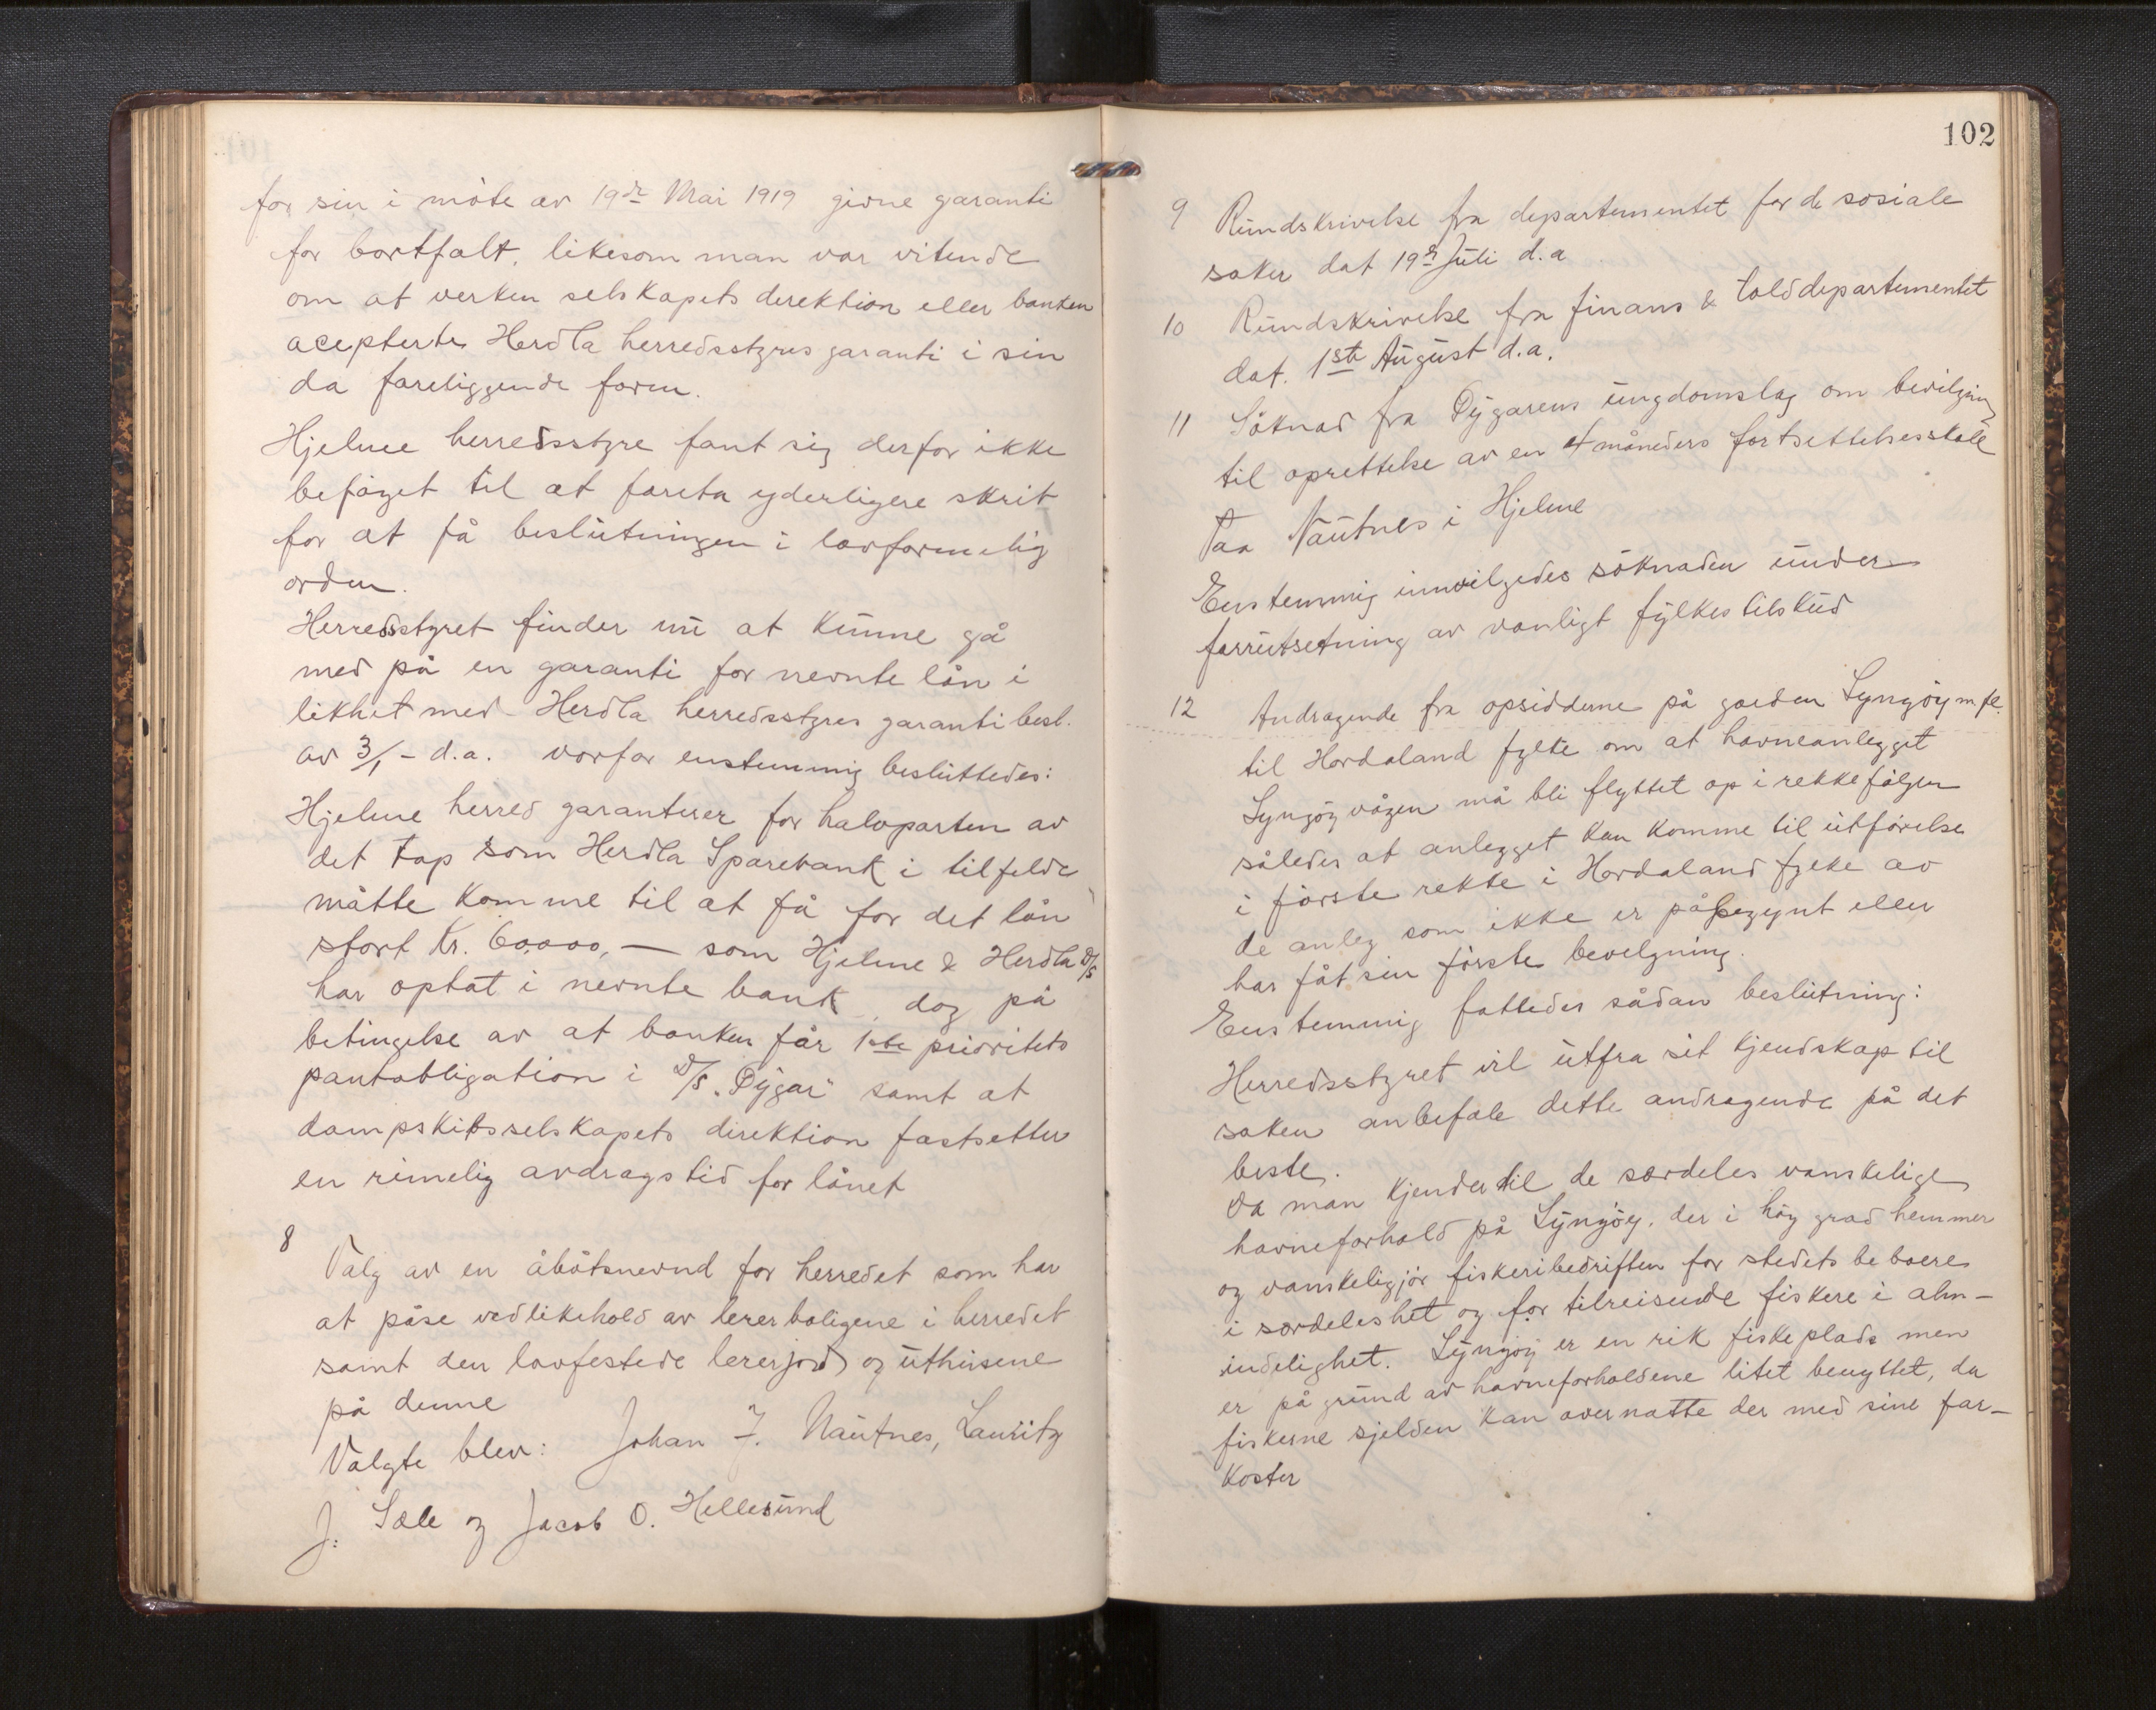 for sin i møte av 19de Mai 1919 givne garanti
for bortfalt, likesom man var vitende
om at verken selskapets direktion eller banken
acepterte Herdla herredsstyres garanti i sin
da foreliggende form.
Hjelme herredsstyre fant sig derfor ikke
beføiget til at foreta yderligere skrit
for at få beslutningen i lovformelig
orden.
Herredsstyret finder nu at kunne gå
med på en garanti for nevnte lån i
likhet med Herdla herredsstyres garanti besl.
av 3/1 - d.a. vorfor enstemmig besluttedes:
Hjelme herred garanterer for halvparten av
det tap som Herdla Sparebank i tilfelde
måtte komme til at få for det lån
stort Kr. 60,000,— som Hjelme & Herdla D/S
har optat i nevnte bank, dog på
betingelse av at banken får 1ste prioritets
pantobligation i D/S „Dygar" samt at
dampskibsselskapets direktion fastsetter
en rimelig avdragstid for lånet
8
Valg av en åbotsnevnd for herredet som har
at påse vedlikehold av lererboligene i herredet
samt den lovfestede lererjord og uthusene
på denne
Valgte blev: Johan J. Nautnes, Lauritz
J. Sæle og Jacob O. Hellesund
102
9 Rundskrivelse fra departementet for de sosiale
saker dat 19de Juli d.a
10 Rundskrivelse fra finans & tolddepartementet
dat. 1ste August d.a.
11 Søknad fra Dygarens ungdomslag om bevilgning
til oprettelse av en 4 måneders fortsettelsesskole
paa Nautnes i Hjelme
Enstemmig innvilgedes søknaden under
forrutsetning av vanligt fylkestilskud
12 Andragende fra opsidderne på garden Lyngøy m.fl.
til Hordaland fylke om at havneanlegget
Lyngøyvågen må bli flyttet op i rekkefølgen
således at anlegget kan komme til utførelse
i første rekke i Hordaland fylke av
de anleg som ikke er påbegynt eller
har fåt sin første bevelgning.
Enstemmig fattedes sådan beslutning:
Herredsstyret vil utfra sit kjendskap til
saken anbefale dette andragende på det
beste.
Da man kjender til de særdeles vanskelige
havneforhold på Lyngøy, der i høy grad hemmer
og vanskeligjør fiskeribedriften for stedets beboere
i særdeleshet og for tilreisende fiskere i alm-
indelighet. Lyngøy er en rik fiskeplads men
er på grund av havneforholdene litet benyttet, da
fiskerne sjelden kan overnatte der med sine far-
koster